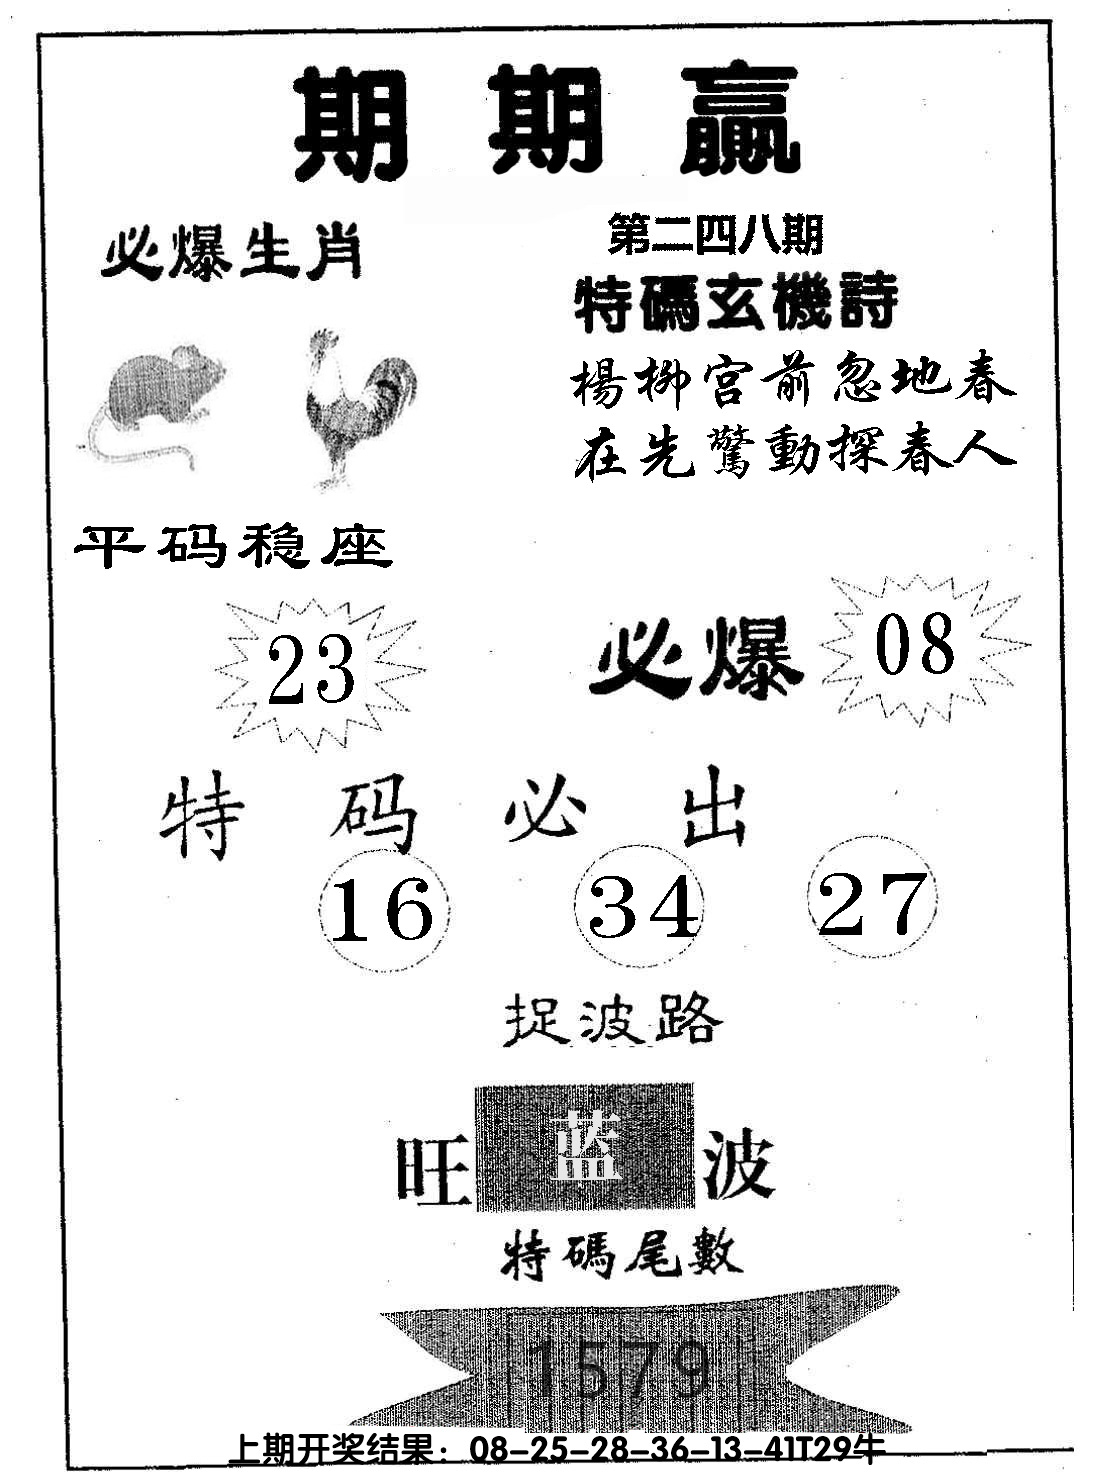 期期赢
必爆生肖
第二四八期
特碼玄機詩
楊柳宫前忽地春
在先驚動探春人
平码稳座
23
必爆
08
特码必出
16 34 27
捉波路
旺蓝波
特碼尾數
1579
上期开奖结果：08-25-28-36-13-41T29牛